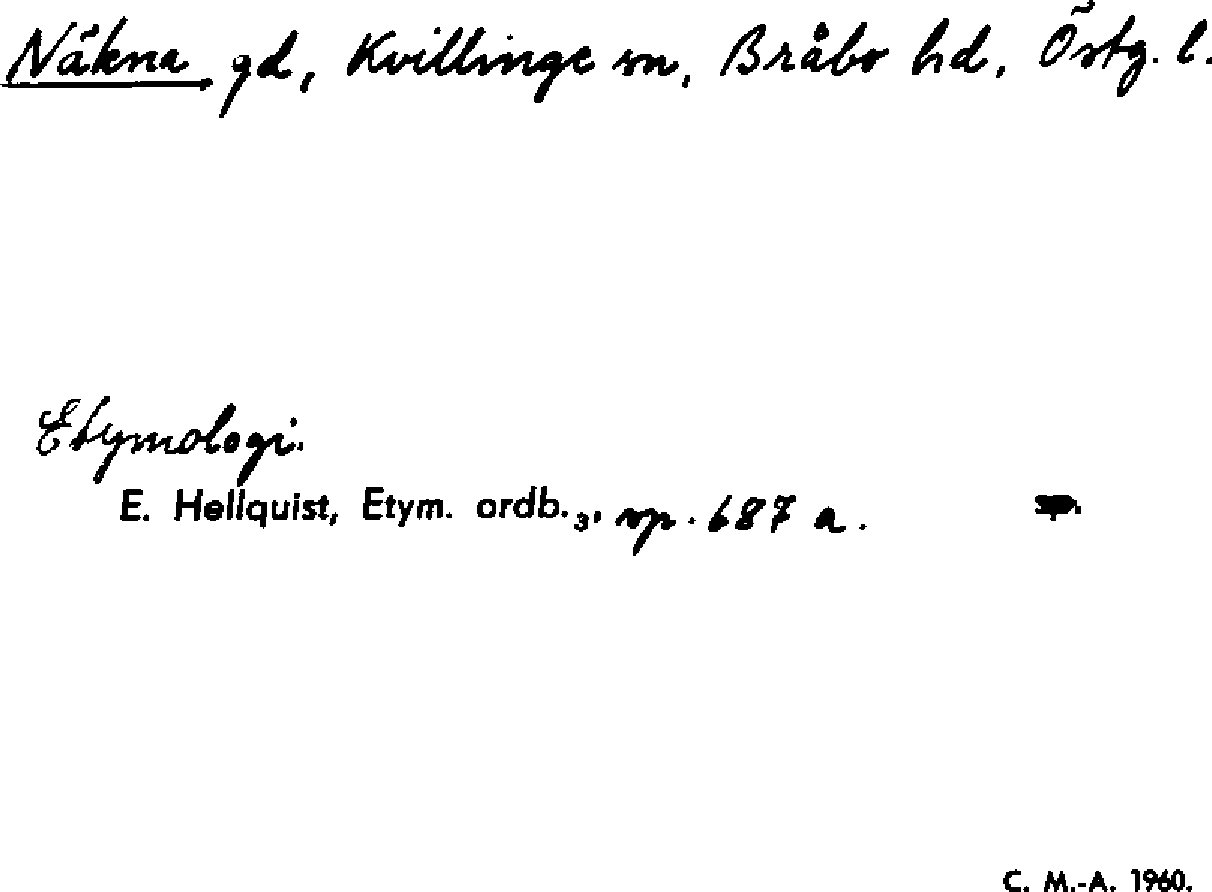 Näkna gd, Kvillinge sn, Bråbo hd, Östg. l.
Etymologi.
E. Hellquist, Etym. ordb.₃, sp. 687 a.
C. M.-A. 1960.